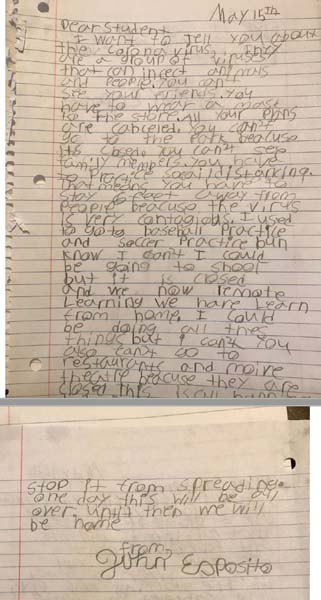 May 15TH
Dear Student
I want to tell you about
the corona virus, They
are a group of viruses
that can infect animals
and people. You can't
see your friends. You
have to wear a mask
to the store. All your plans
are canceled. You can't
go to the Park beacuse
its closed. You can't see
family members. You have
to practice
that means you have to
stay 6-feet away from
people beacuse the virus
is very contagious. I used
to go to baseball Practice
and soccer Practice bun
know I can't I could
be going to shool
but it is closed
and we now remote
Learning we have Learn
from home. I could
be doing all thes
things but I can't You
also can't go to
restaurants and moive
theatre beacuse they are
closed this is all
stop it from spreading.
one day this will be all
over. until then we will
be home
from,
John Esposito